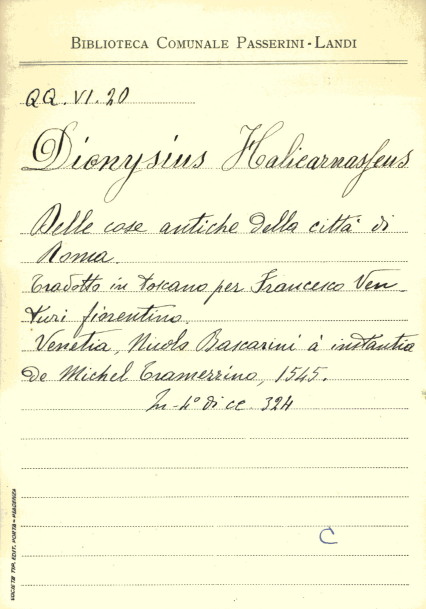 BIBLIOTECA COMUNALE PASSERINI - LANDI
QQ. VI. 20
Dionysius Halicarnasseus
Delle cose antiche della città di
Roma.
Tradotto in toscano per Francesco Ven-
turi fiorentino.
Venetia, Nicolo Bascarini à instantia
de Michel Tramezzino, 1545.
In-4° di cc. 324
C
SOCIETÀ TIP. EDIT. PORTA - PIACENZA